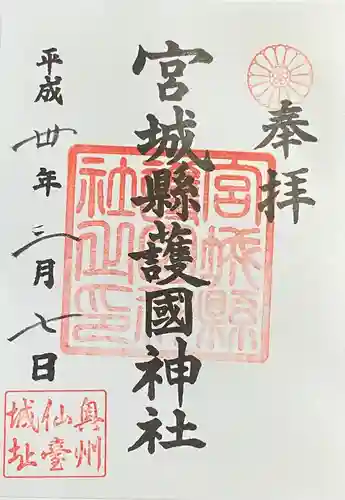 奉拝
宮城縣護國神社
宮城縣護國神社之印
平成卅年三月七日
奥州仙臺城址